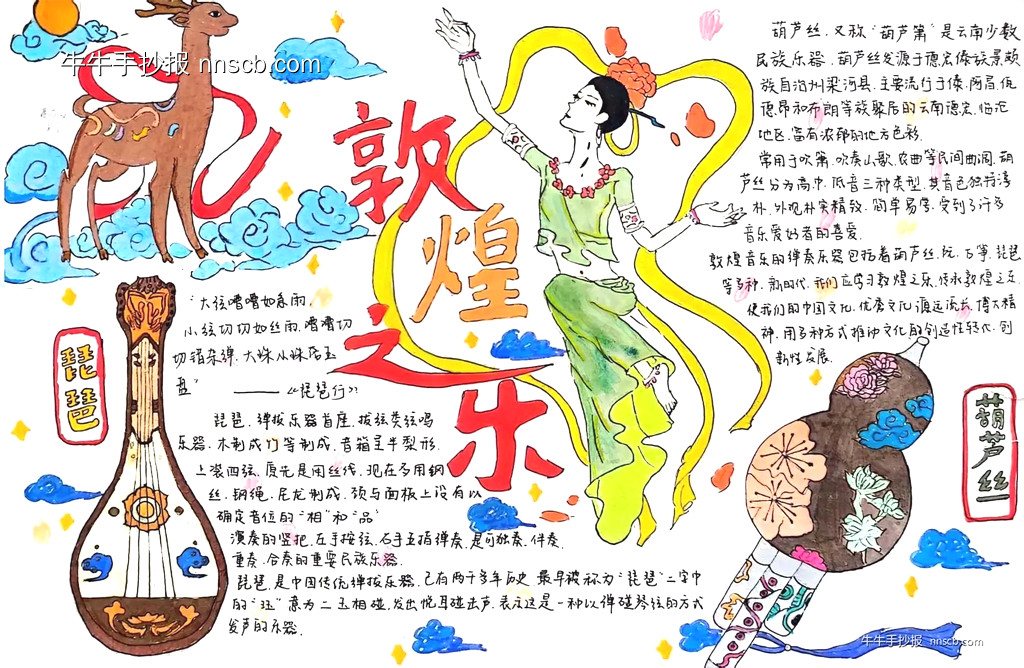 牛牛手抄报 nnscb.com
敦煌之乐
琵琶
"大弦嘈嘈如急雨,
小弦切切如丝雨,嘈嘈切
切错杂弹,大珠小珠落玉
盘"
——《琵琶行》
琵琶,弹拨乐器首座,拨弦类弦鸣
乐器。木制成竹等制成,音箱呈半梨形,
上装四弦,原先是用丝线,现在多用钢
丝、钢绳、尼龙制成。颈与面板上设有以
确定音位的"相"和"品"
演奏的竖抱,左手按弦,右手五指弹奏,是可独奏、伴奏、
重奏、合奏的重要民族乐器。
琵琶,是中国传统弹拨乐器,已有两千多年历史。最早被称为"琵琶"二字中
的"珏"意为二玉相碰,发出悦耳碰击声,表示这是一种以弹碰琴弦的方式
发声的乐器。
葫芦丝,又称"葫芦箫"是云南少数
民族乐器,葫芦丝发源于德宏傣族景颇
族自治州梁河县,主要流行于傣、阿昌、佤、
德昂和布朗等族聚居的云南德宏、临沧
地区,富有浓郁的地方色彩。
常用于吹箫,吹奏山歌、农曲等民间曲调,葫
芦丝分为高、中、低音三种类型,其音色独特淳
朴,外观朴实精致,简单易学,受到了许多
音乐爱好者的喜爱。
敦煌音乐的弹奏乐器包括着葫芦丝、阮、古筝、琵琶
等多种。新时代,我们应学习敦煌之乐,传承敦煌之乐,
使我们的中国文化,优秀文化源远流长,博大精
神,用多种方式推动文化的创造性转化、创
新性发展。
葫芦丝
牛牛手抄报 nnscb.com